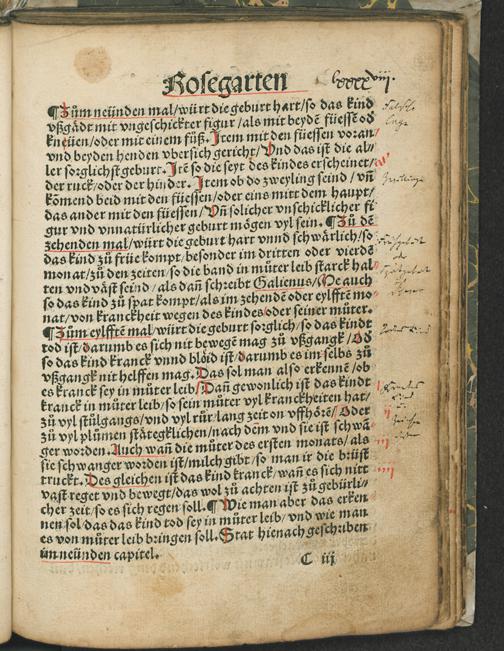 Rosegarten
lxxxxviii.
¶Züm neünden mal/würt die geburt hart/so das kind
vßgădt mit vngeschickter figur/als mit beydē füessē od̛
kneüen/oder mit einem füß. Item mit den füessen voran/
vnd beyden henden vbersich gericht/Vnd das ist die al/
ler sorglichst geburt. Itē so die seyt des kindes erscheinet/
der ruck/oder der hinder. Item ob do zweyling seind/vn̄
kōmend beid mit den füessen/oder eins mitt dem haupt/
das ander mit den füessen/Vn̄ solicher vnschicklicher fi/
gur vnd vnnatürlicher geburt mögen vyl sein. ¶Zů dē
zehenden mal/würt die geburt hart vnnd schwärlich/so
das kind zů früe kompt/besonder im dritten oder vierdē
monat/zů den zeiten/so die band in můter leib starck hal
ten vnd väst seind/als dan̄ schreibt Galienus/Oe auch
so das kind zů spat kompt/als im zehendē oder eylfftē mo
nat/von kranckheit wegen des kindes oder seiner můter.
¶Züm eylfftē mal/würt die geburt sorglich/so das kindt
tod ist/darumb es sich nit bewegē mag zů vßgangk/Od̛
so das kind kranck vnnd blöid ist/darumb es im selbs zů
vßgangk nit helffen mag. Das sol man also erkennē/ob
es kranck sey in můter leib/Dan̄ gewonlich ist das kindt
kranck in můter leib/so sein můter vyl kranckheiten hat/
zů vyl stülgangs/vnd vyl růr/lang zeit on vffhörē/Oder
zů vyl plůmen stätegklichen/nach dem vnd sie ist schwā
ger worden. Auch wan̄ die můter des ersten monats/als
sie schwanger worden ist/milch gibt/so man ir die brüst
truckt. Des gleichen ist das kind kranck/wan̄ es sich nitt
vast reget vnd bewegt/das wol zů achten ist zů gebürli/
cher zeit/so es sich regen soll.¶ Wie man aber das erken
nen sol/das das kind tod sey in můter leib/vnd wie man
es von můter leib bringen soll. Stat hienach geschriben
im neünden capitel.
C iij